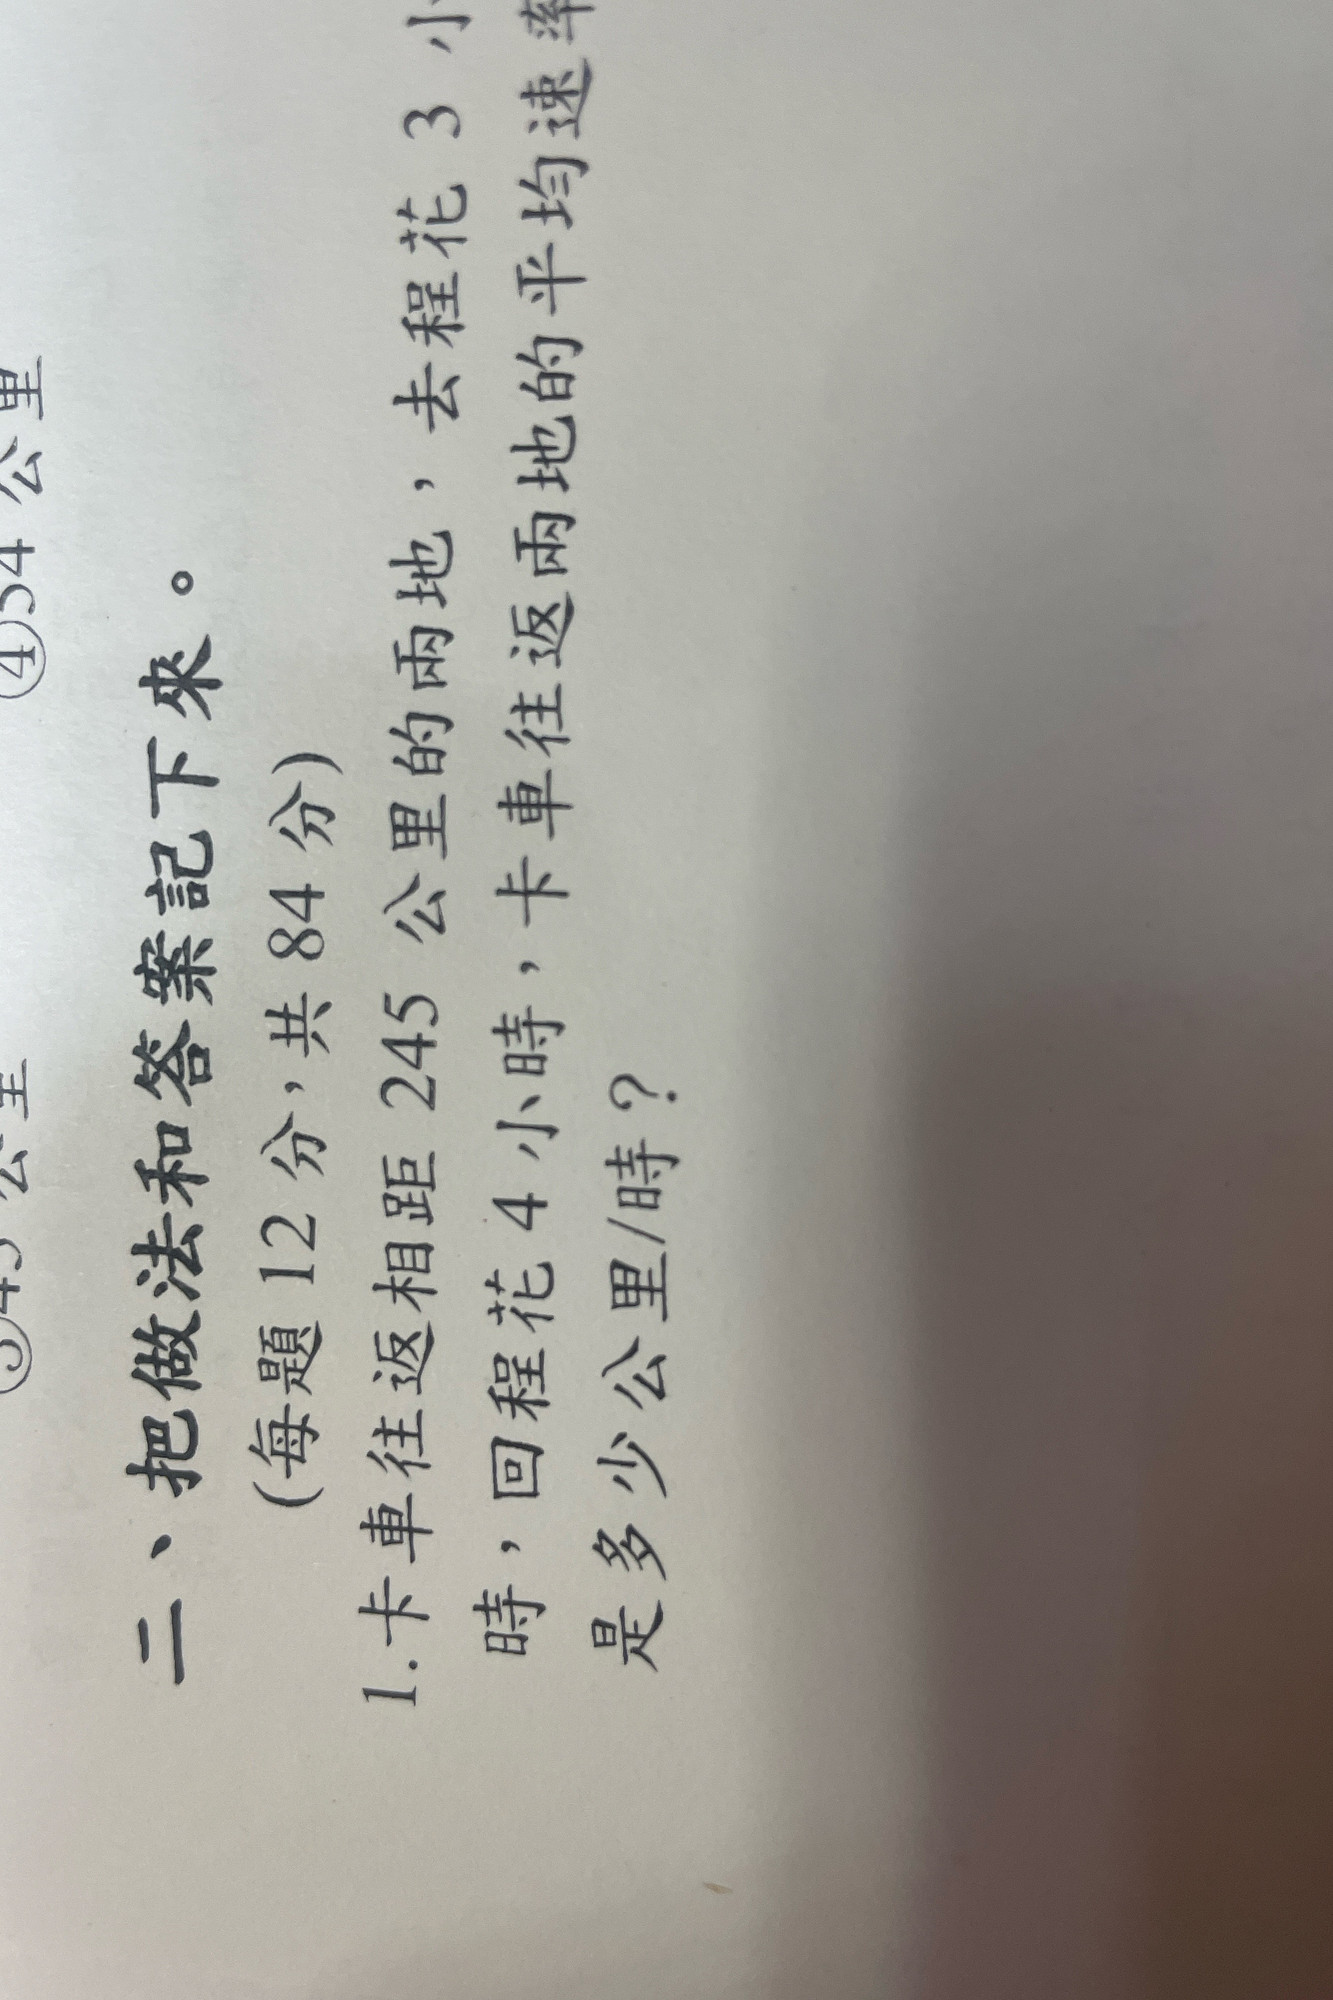 ④54 公里
二、把做法和答案記下來。
(每題 12 分，共 84 分)
1.卡車往返相距 245 公里的兩地，去程花 3 小
時，回程花 4 小時，卡車往返兩地的平均速率
是多少公里/時？